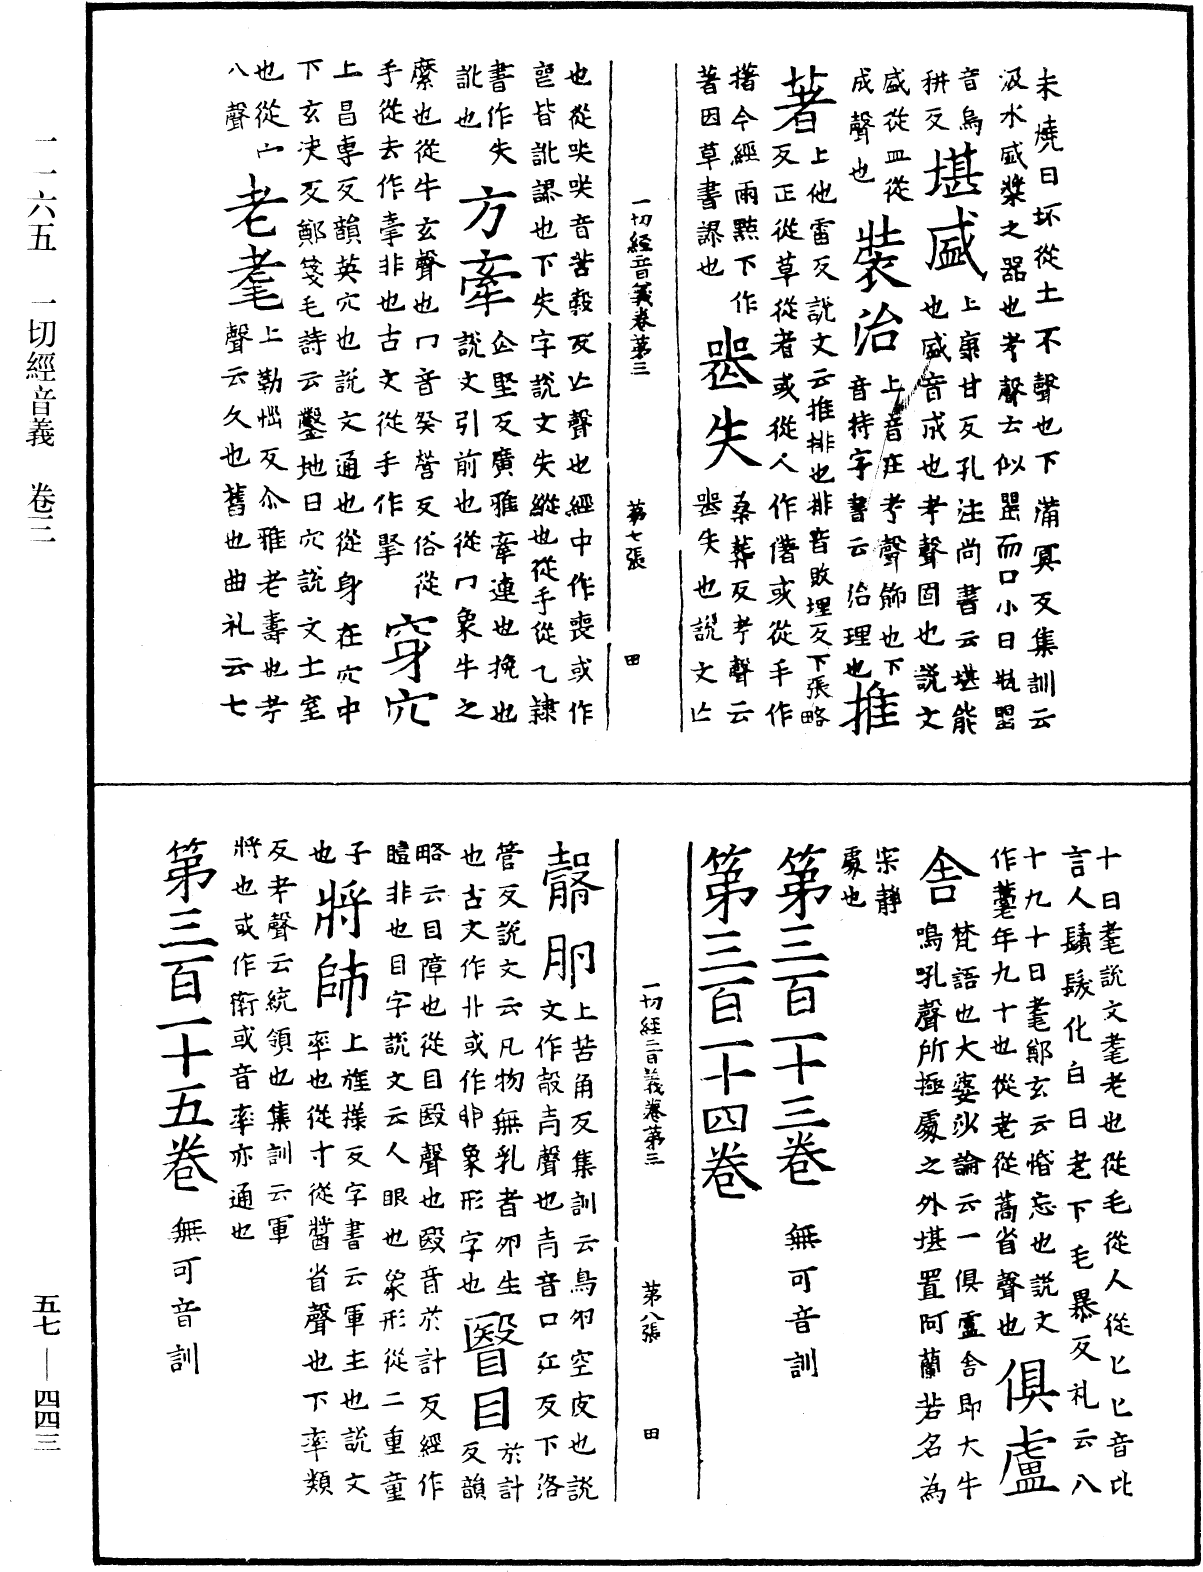 一一六五　一切經音義　卷三
五七—四四三
未燒曰坏從土不聲也下蒲冥反集訓云
汲水盛漿之器也考聲云似罌而口小曰瓶罌
音烏耕反
堪盛上康甘反孔注尚書云堪能也盛音成也考聲固也說文
盛從皿從成聲也
裝治上音庄考聲飾也下音持字書云治理也
推著上他雷反說文云推排也排音敗埋反下張略反正從草從者或從人作偖或從手作
撦今經兩點下作著因草書謬也
喪失桑葬反考聲云喪失也說文亡
也從哭哭音苦穀反亡聲也經中作喪或作
皆訛謬也下失字說文失縱也從手從乙隸
書作失訛也
方牽企堅反廣雅牽連也挽也說文引前也從冂象牛之
縻也從牛玄聲也冂音癸營反俗從
手從去作牽非也古文從手作掔
穿穴
上昌專反韻英穴也說文通也從身在穴中
下玄決反鄭箋毛詩云鑿地曰穴說文土室
也從宀八聲
老耄上勒惱反尒雅老壽也考聲云久也舊也曲礼云七
一切經音義卷第三　第七張　田
十曰耄說文耄老也從毛從人從匕匕音比
言人鬚髮化白曰老下毛暴反礼云八
十九十曰耄鄭玄云惛忘也說文
作薹年九十也從老從蒿省聲也
俱盧
舍梵語也大婆沙論云一俱盧舍即大牛
鳴吼聲所極處之外堪置阿蘭若名為
寂靜處也
第三百一十三卷　無可音訓
第三百一十四卷
一切經音義卷第三　第八張　田
㲉卵上苦角反集訓云鳥卵空皮也說文作㱿𡉉聲也𡉉音口江反下洛
管反說文云凡物無乳者卵生
也古文作卝或作卵象形字也
瞖目於計反韻
略云目障也從目殹聲也殹音於計反經作
瞖非也目字說文云人眼也象形從二重童
子也
將帥上旌樣反字書云軍主也說文率也從寸從醬省聲也下率類
反考聲云統領也集訓云軍
將也或作衛或音率亦通也
第三百一十五卷　無可音訓